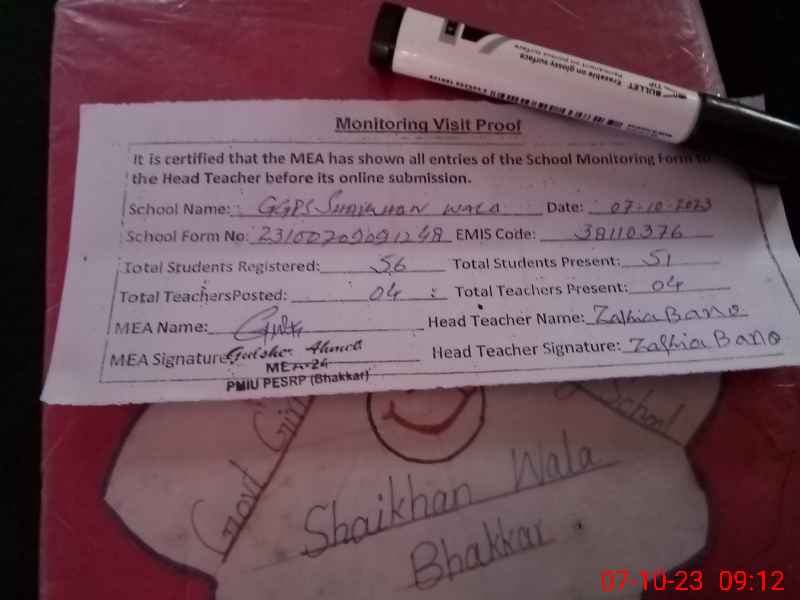 BULLET Erasable on glossy surface
Monitoring Visit Proof
It is certified that the MEA has shown all entries of the School Monitoring Form to
the Head Teacher before its online submission.
School Name: GGPS Shaikhan Wala Date: 07-10-2023
School Form No: 23100709091248 EMIS Code: 38110376
Total Students Registered: 56 Total Students Present: 51
Total TeachersPosted: 04 Total Teachers Present: 04
MEA Name: Head Teacher Name: Zakia Bano
MEA Signature: Gulsher Ahmed Head Teacher Signature: Zakia Bano
MEA-24
PMIU PESRP (Bhakkar)
Govt Girls School
Shaikhan Wala
Bhakkar
07-10-23 09:12